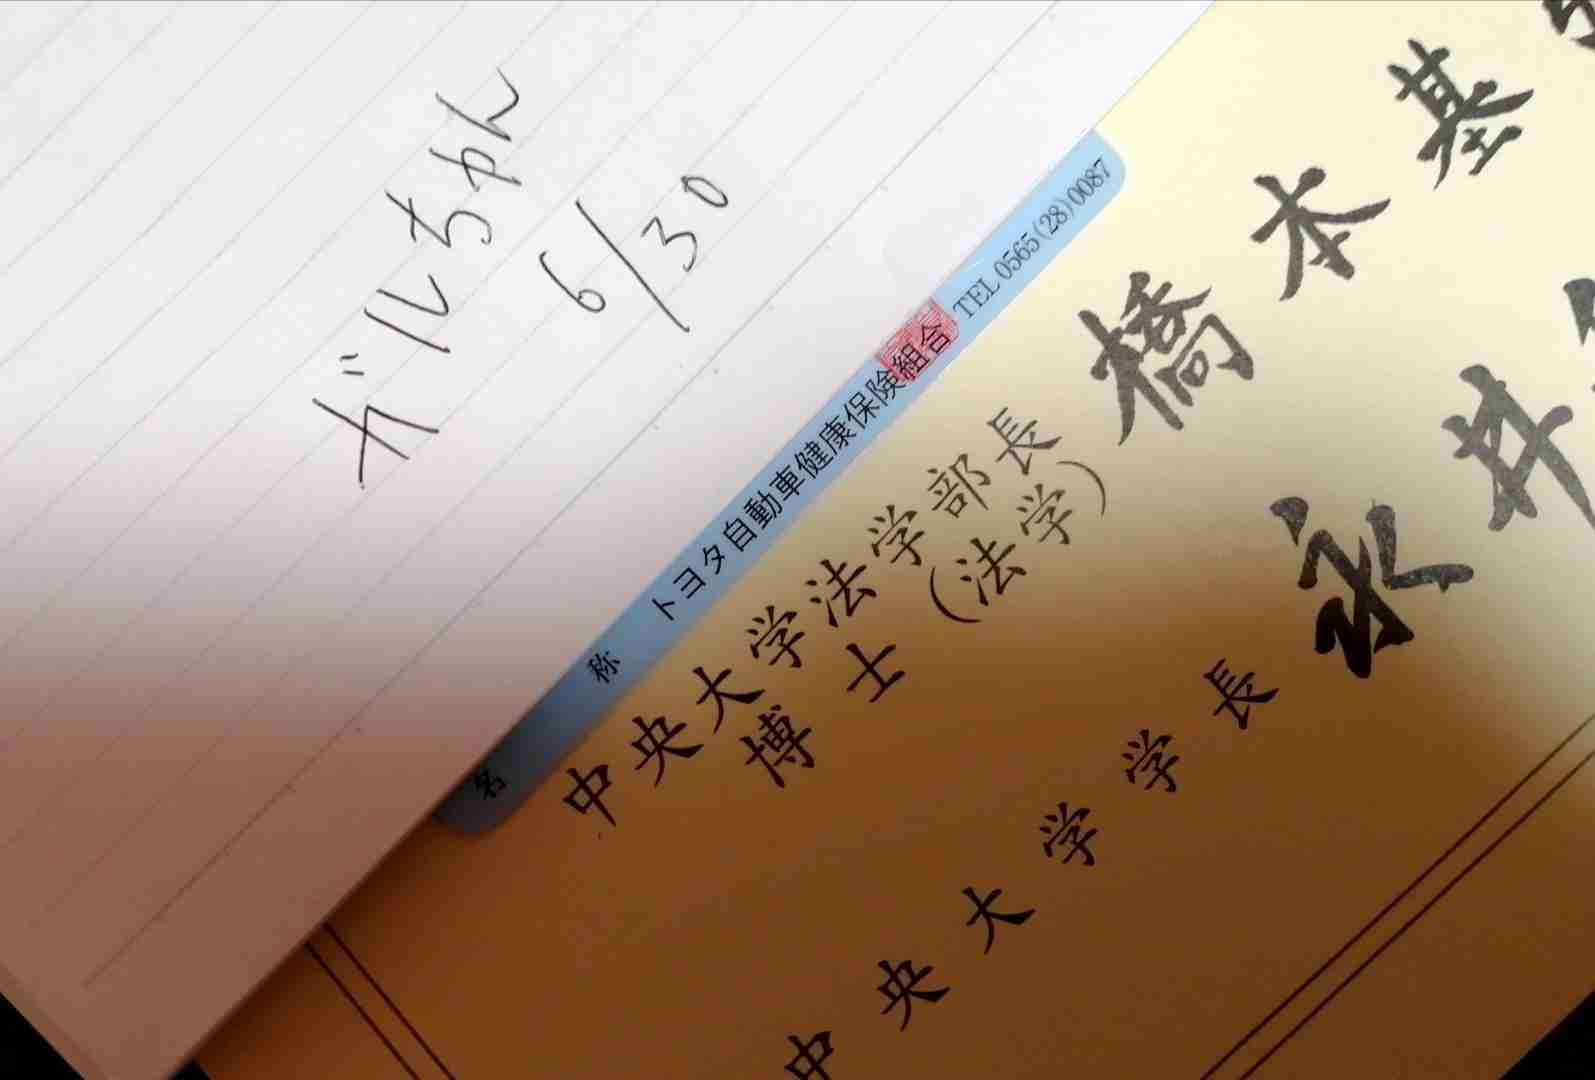 ガルちゃん
6/30
名 称 トヨタ自動車健康保険組合 TEL 0565(28)0087
中央大学法学部長 橋本基
博士(法学)
中央大学学長 永井